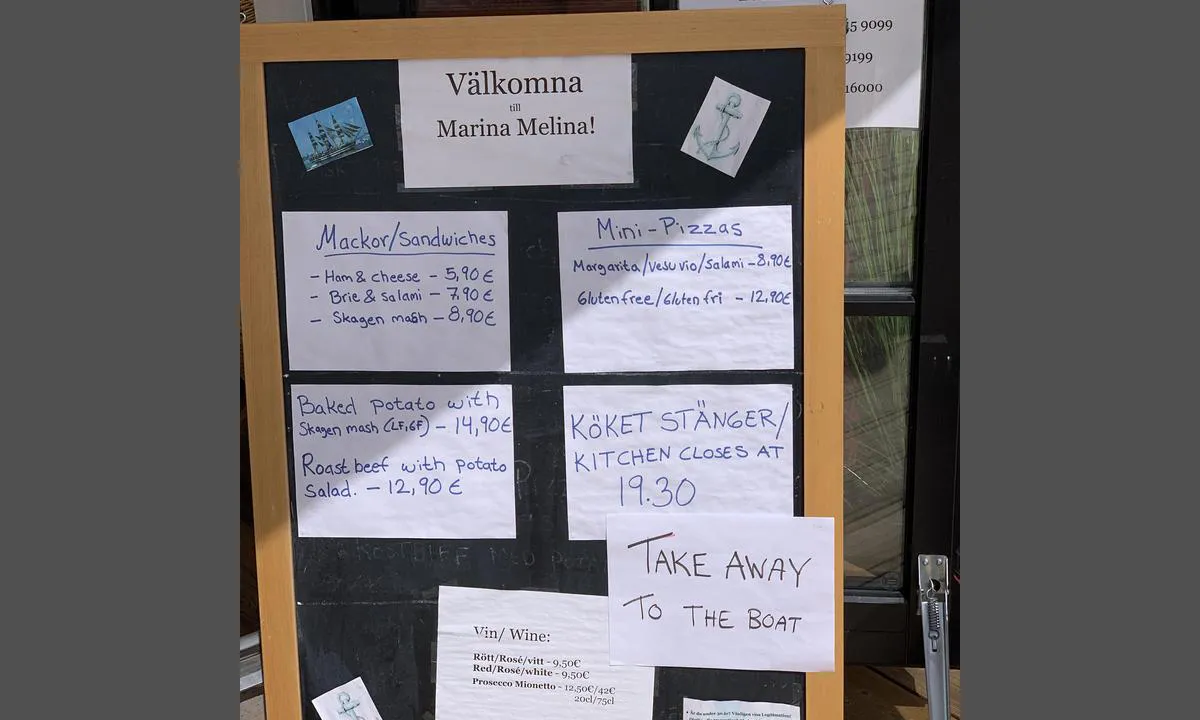 45 9099
9199
16000
Välkomna
till
Marina Melina!
Mackor/Sandwiches
- Ham & cheese - 5,90 €
- Brie & salami - 7,90 €
- Skagen mash - 8,90 €
Mini-Pizzas
Margarita/vesuvio/salami - 8,90€
Glutenfree/Gluten fri - 12,90€
Baked potato with
Skagen mash (LF,GF) - 14,90€
Roastbeef with potato
Salad. - 12,90 €
KÖKET STÄNGER/
KITCHEN CLOSES AT
19.30
TAKE AWAY
TO THE BOAT
Vin/ Wine:
Rött/Rosé/vitt - 9,50€
Red/Rosé/white - 9,50€
Prosecco Mionetto - 12,50€/42€
20cl/75cl
• Är du under 30 år? Vänligen visa Legitimation!